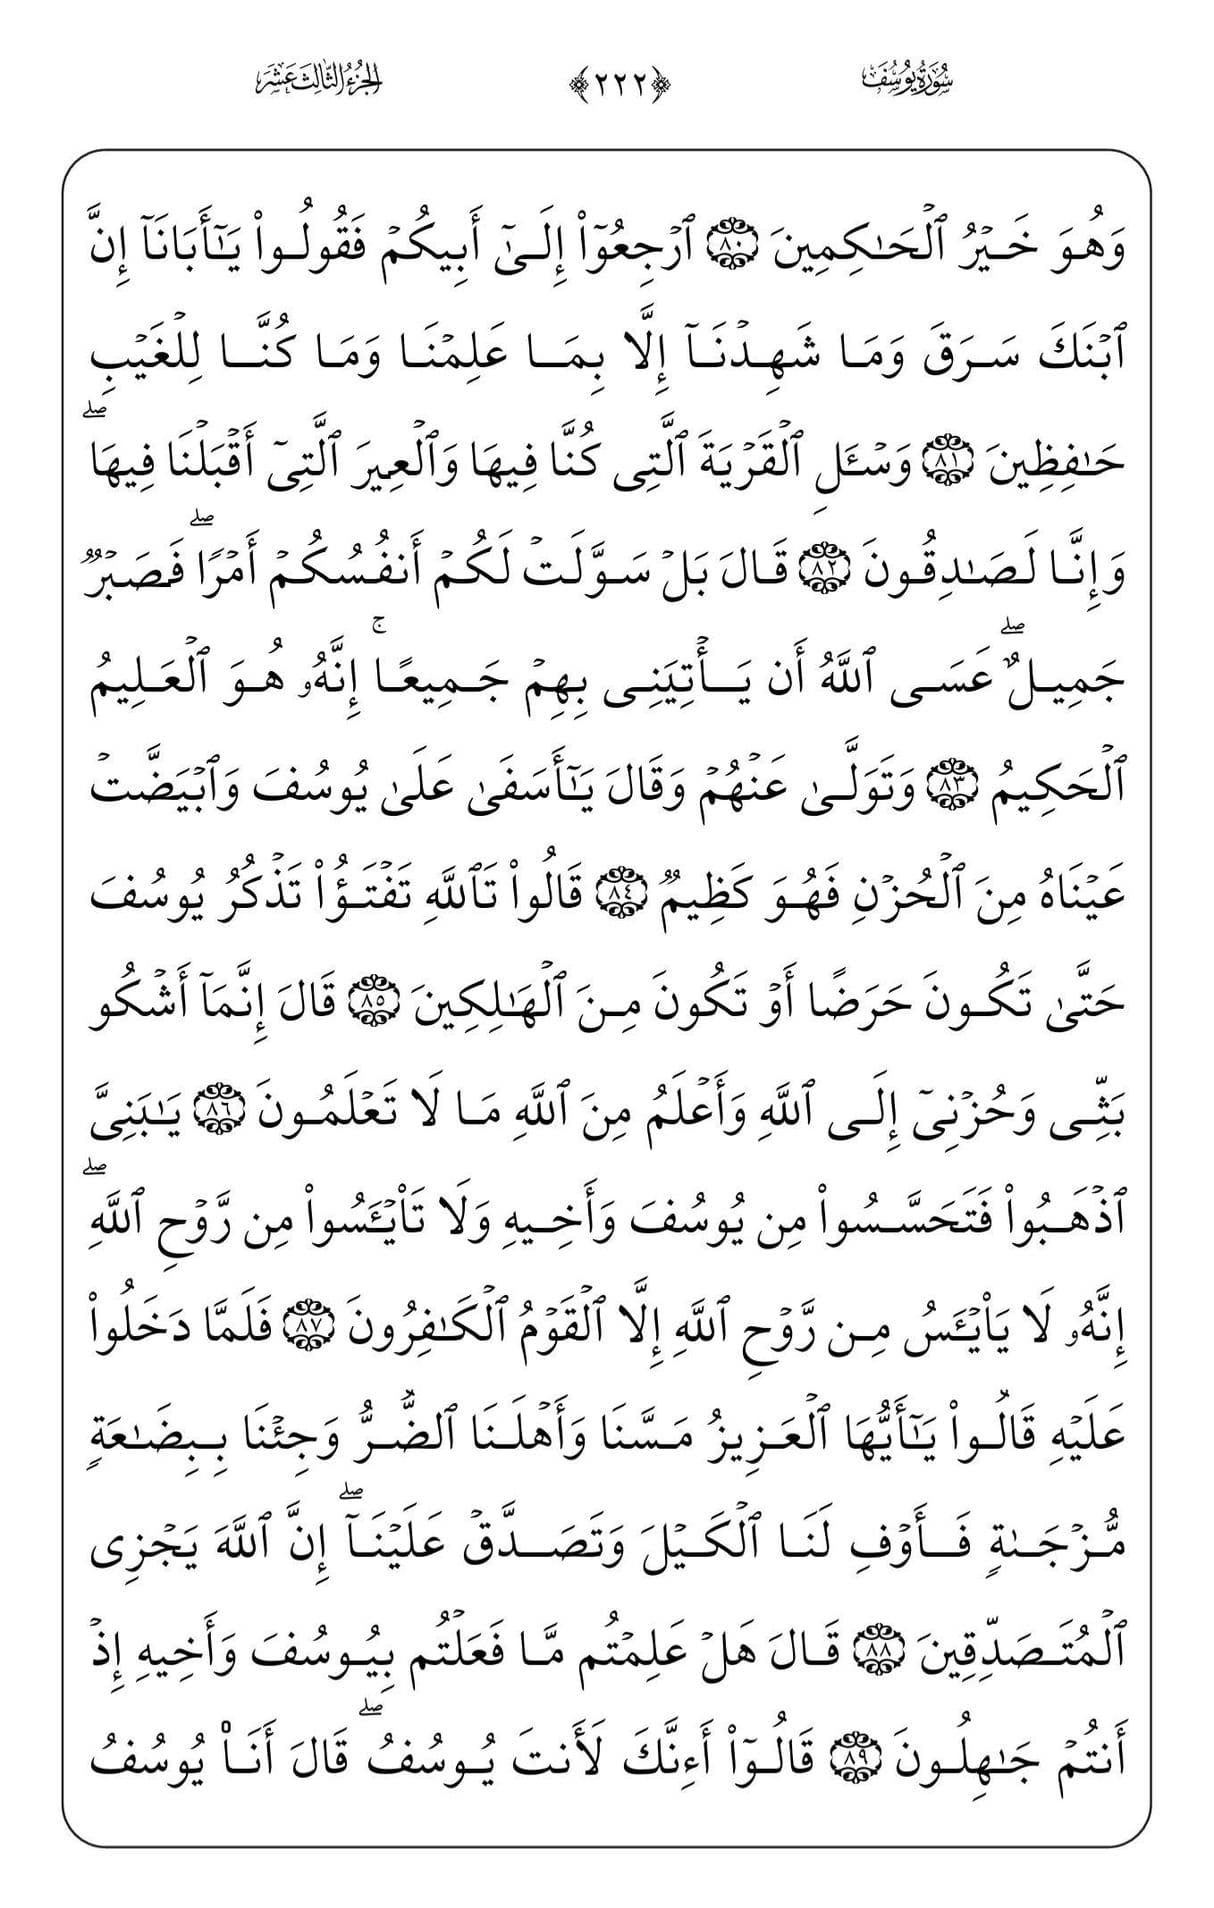 سُورَةُ يُوسُفَ ﴿٢٢٢﴾ الجُزْءُ الثَّالِثَ عَشَرَ
وَهُوَ خَيۡرُ ٱلۡحَٰكِمِينَ ٨٠ ٱرۡجِعُوٓاْ إِلَىٰٓ أَبِيكُمۡ فَقُولُواْ يَٰٓأَبَانَآ إِنَّ
ٱبۡنَكَ سَرَقَ وَمَا شَهِدۡنَآ إِلَّا بِمَا عَلِمۡنَا وَمَا كُنَّا لِلۡغَيۡبِ
حَٰفِظِينَ ٨١ وَسۡـَٔلِ ٱلۡقَرۡيَةَ ٱلَّتِي كُنَّا فِيهَا وَٱلۡعِيرَ ٱلَّتِيٓ أَقۡبَلۡنَا فِيهَاۖ
وَإِنَّا لَصَٰدِقُونَ ٨٢ قَالَ بَلۡ سَوَّلَتۡ لَكُمۡ أَنفُسُكُمۡ أَمۡرٗاۖ فَصَبۡرٞ
جَمِيلٌۖ عَسَى ٱللَّهُ أَن يَأۡتِيَنِي بِهِمۡ جَمِيعًاۚ إِنَّهُۥ هُوَ ٱلۡعَلِيمُ
ٱلۡحَكِيمُ ٨٣ وَتَوَلَّىٰ عَنۡهُمۡ وَقَالَ يَٰٓأَسَفَىٰ عَلَىٰ يُوسُفَ وَٱبۡيَضَّتۡ
عَيۡنَاهُ مِنَ ٱلۡحُزۡنِ فَهُوَ كَظِيمٞ ٨٤ قَالُواْ تَٱللَّهِ تَفۡتَؤُاْ تَذۡكُرُ يُوسُفَ
حَتَّىٰ تَكُونَ حَرَضًا أَوۡ تَكُونَ مِنَ ٱلۡهَٰلِكِينَ ٨٥ قَالَ إِنَّمَآ أَشۡكُو
بَثِّي وَحُزۡنِيٓ إِلَى ٱللَّهِ وَأَعۡلَمُ مِنَ ٱللَّهِ مَا لَا تَعۡلَمُونَ ٨٦ يَٰبَنِيَّ
ٱذۡهَبُواْ فَتَحَسَّسُواْ مِن يُوسُفَ وَأَخِيهِ وَلَا تَاْيۡـَٔسُواْ مِن رَّوۡحِ ٱللَّهِۖ
إِنَّهُۥ لَا يَاْيۡـَٔسُ مِن رَّوۡحِ ٱللَّهِ إِلَّا ٱلۡقَوۡمُ ٱلۡكَٰفِرُونَ ٨٧ فَلَمَّا دَخَلُواْ
عَلَيۡهِ قَالُواْ يَٰٓأَيُّهَا ٱلۡعَزِيزُ مَسَّنَا وَأَهۡلَنَا ٱلضُّرُّ وَجِئۡنَا بِبِضَٰعَةٖ
مُّزۡجَىٰةٖ فَأَوۡفِ لَنَا ٱلۡكَيۡلَ وَتَصَدَّقۡ عَلَيۡنَآۖ إِنَّ ٱللَّهَ يَجۡزِي
ٱلۡمُتَصَدِّقِينَ ٨٨ قَالَ هَلۡ عَلِمۡتُم مَّا فَعَلۡتُم بِيُوسُفَ وَأَخِيهِ إِذۡ
أَنتُمۡ جَٰهِلُونَ ٨٩ قَالُوٓاْ أَءِنَّكَ لَأَنتَ يُوسُفُۖ قَالَ أَنَا۠ يُوسُفُ